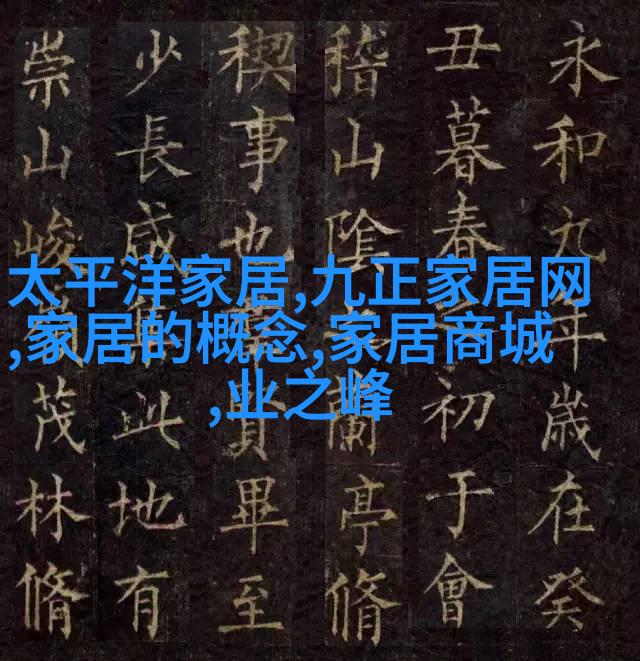 永和九年歲在癸
丑暮春之初于會
稽山陰蘭亭脩
禊事也賢畢至
少長咸此地有
崇山峻茂林脩
太平洋家居,九正家居网
,家居的概念,家居商城
,业之峰